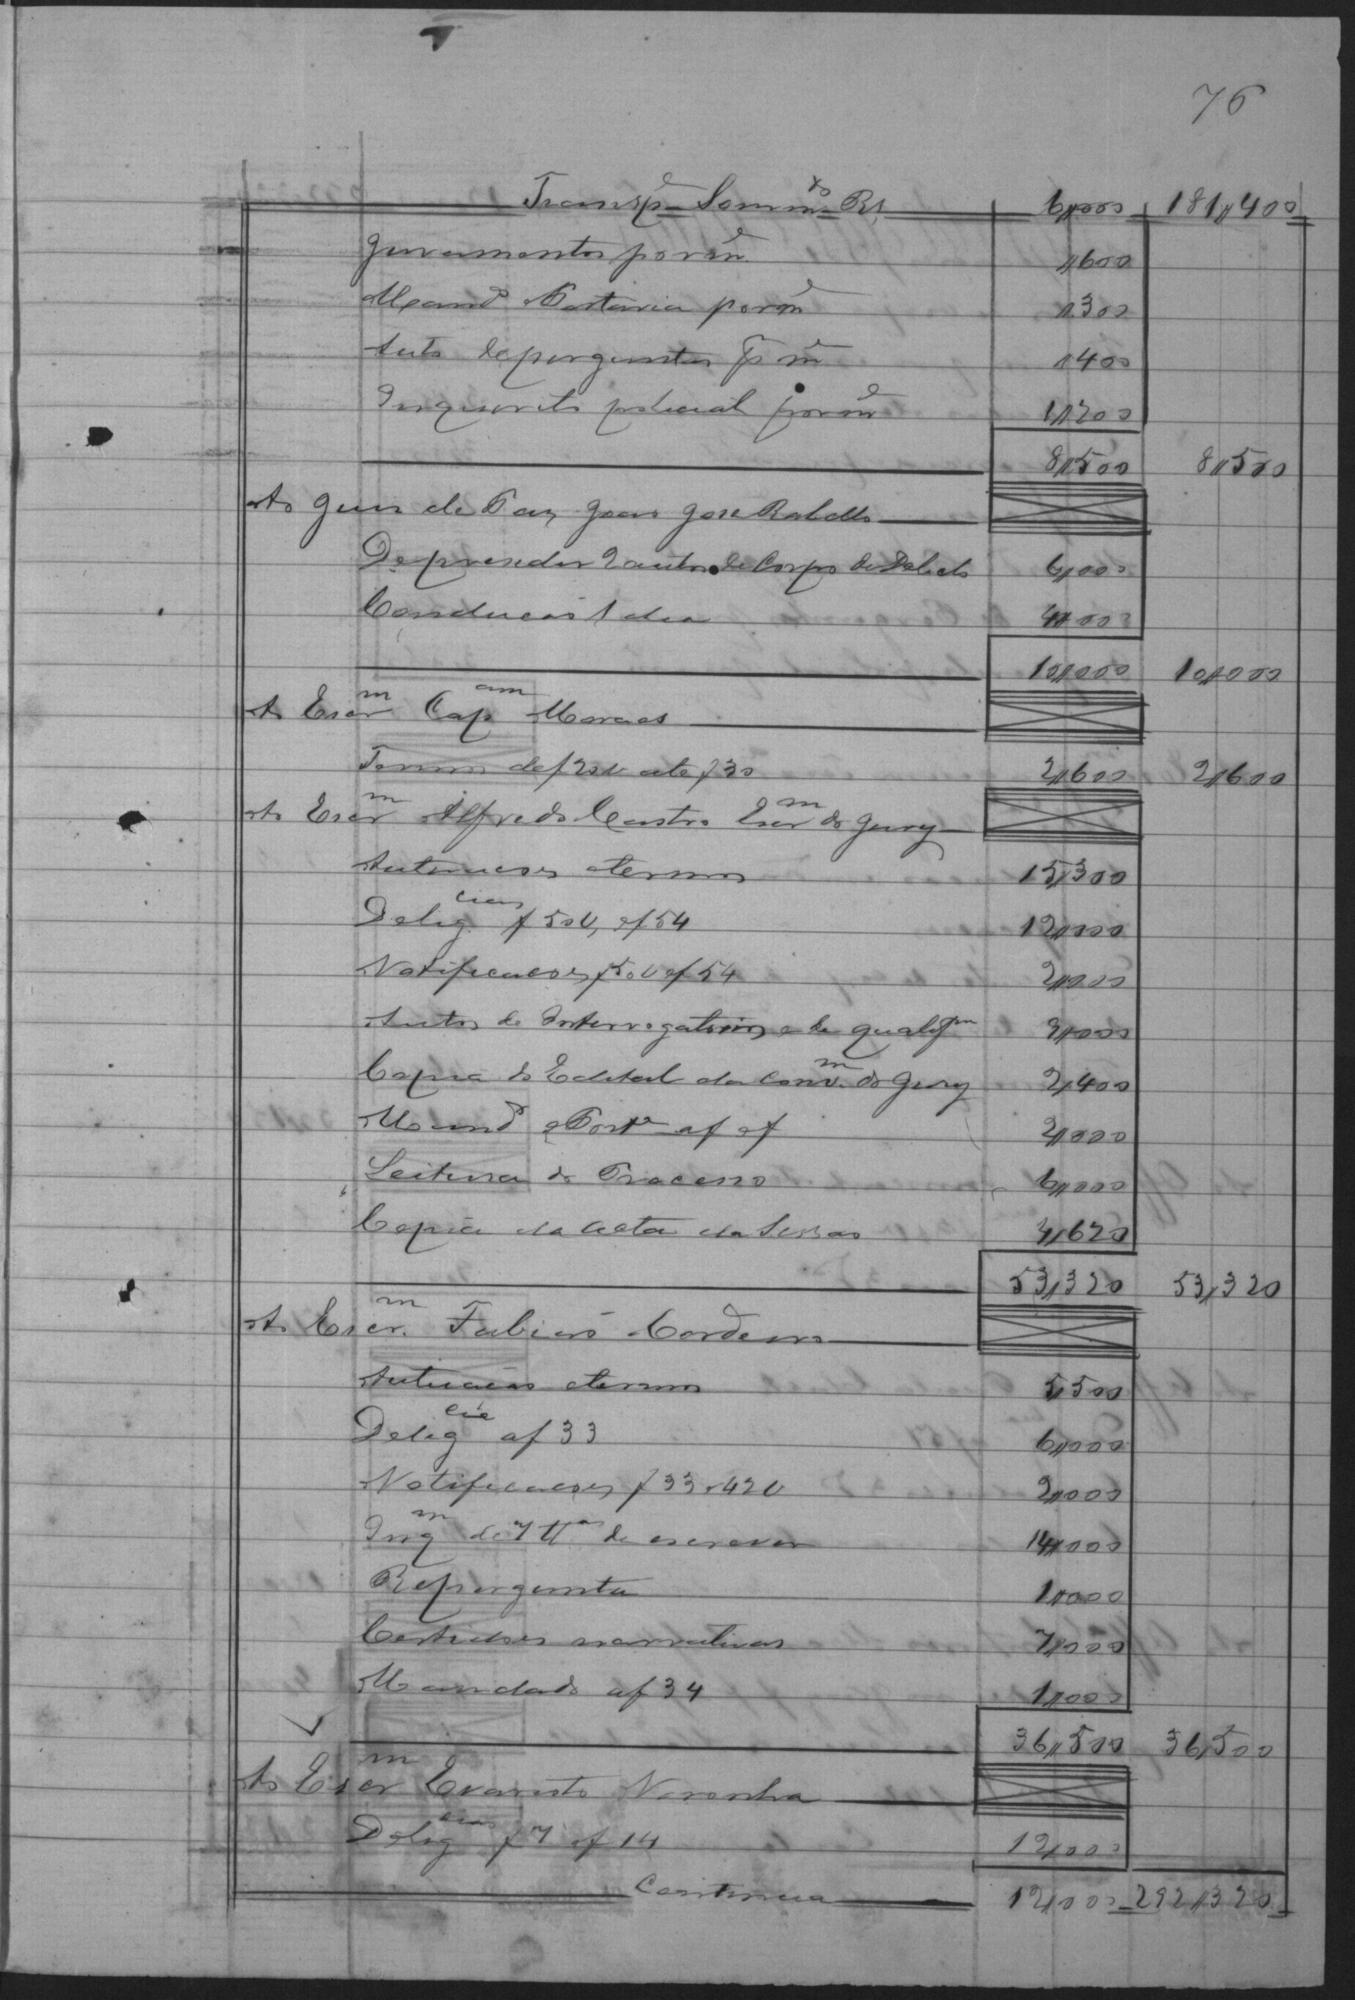 76
Transp.e Somma do Rs 6,,000 181,,400
Juramentos por m.e ,,600
Mand.o Portaria por m.e ,,300
Auto de perguntas p.r m.e ,,400
Inquerito policial por m.e 1,,200
8,,500 8,,500
Ao Juis de Paz João José Rabello
De proceder 2 autos de Corpo de Delicto 6,,000
Conducção 1 dia 4,,000
10,,000 10,,000
Ao Escr.m Cap.am Moraes
Termos de f 20v ate f 30 2,,600 2,,600
Ao Escr.m Alfredo Castro Escr.m do Jury
Autuacoes e termos 15,,300
Delig.cias f 50v, e f 54 12,,000
Notificacoes f 50v e f 54 2,,000
Autos de Interrogatorios e de qualif.am
Copia do Edital da conv.m do Jury 2,,400
Mand.o e Port.a a f e f
Leitura do Processo 6,,000
Copia da acta da Sessão
53,,320 53,,320
Ao Escr.m Fabião Cordeiro
Autuacão e termos 5,,500
Delig.cia a f 33 6,,000
Notificacoes f 33 e 42v 2,,000
Inq.m de 7 tt.as de escrever 14,,000
Repergunta 1,,000
Certidoes narrativas 7,,000
Mandado a f 34 1,,000
36,,500 36,,500
Ao Escr.m Evaristo Noronha
Delig.cias f 7 e f 14 12,,000
Continua 12,,000 292,,320